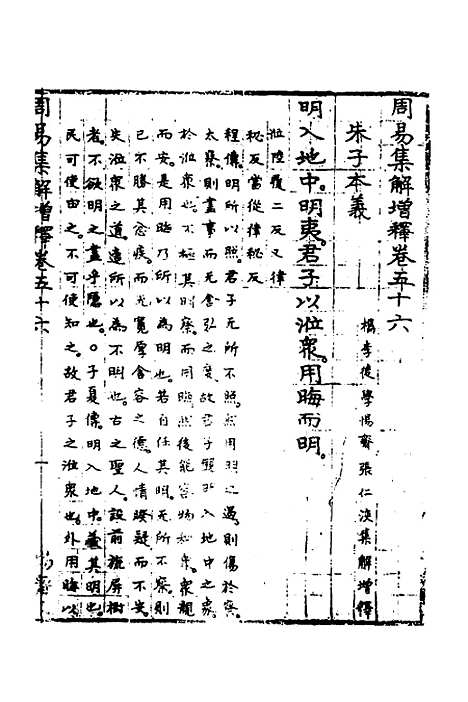 周易集解增釋卷五十六
檇李後學惕齋張仁浹集解增釋
朱子本義
明入地中。明夷。君子以涖衆。用晦而明。
涖陸履二反又律
秘反當從律秘反
程傳。明所以照。君子无所不照。然用明之過。則傷於察。
太察。則盡事而无含弘之度。故君子觀明入地中之象。
於涖衆也。不極其明察而用晦。然後能容物和衆。衆親
而安。是用晦乃所以為明也。若自任其明。无所不察。則
已不勝其忿疾。而无寬厚含容之德。人情睽疑而不安。
失涖衆之道。適所以為不明也。古之聖人。設前旒屏樹
者。不欲明之盡乎隱也。○子夏傳。明入地中。蓋其明也。
民可使由之。不可使知之。故君子之涖衆也。外用晦以
周易集解增釋卷五十六 一